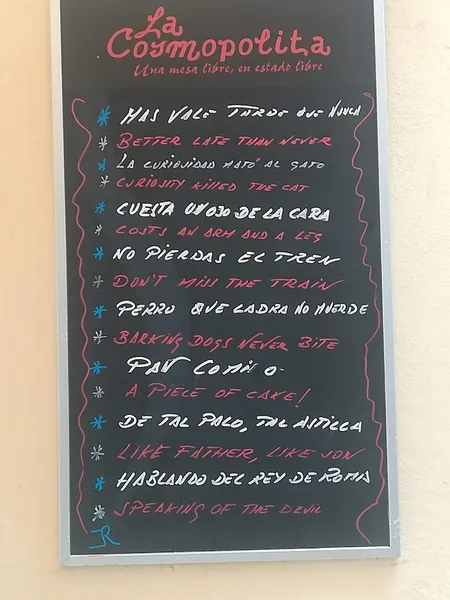 La
Cosmopolita
Una mesa libre, en estado libre
HAS VALE TARDE QUE NUNCA
BETTER LATE THAN NEVER
LA CURIOSIDAD MATÓ AL GATO
CURIOSITY KILLED THE CAT
CUESTA UN OJO DE LA CARA
COSTS AN ARM AND A LEG
NO PIERDAS EL TREN
DON'T MISS THE TRAIN
PERRO QUE LADRA NO MUERDE
BARKING DOGS NEVER BITE
PAN COMIDO
A PIECE OF CAKE!
DE TAL PALO, TAL ASTILLA
LIKE FATHER, LIKE SON
HABLANDO DEL REY DE ROMA
SPEAKING OF THE DEVIL
JR